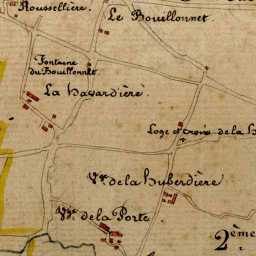 Roussellière
Le Bouillonnet
Fontaine
du Bouillonnet
La Havardière
Loge et Croix de la H
Vx. de la Huberdière
Vx. de la Porte
2ème